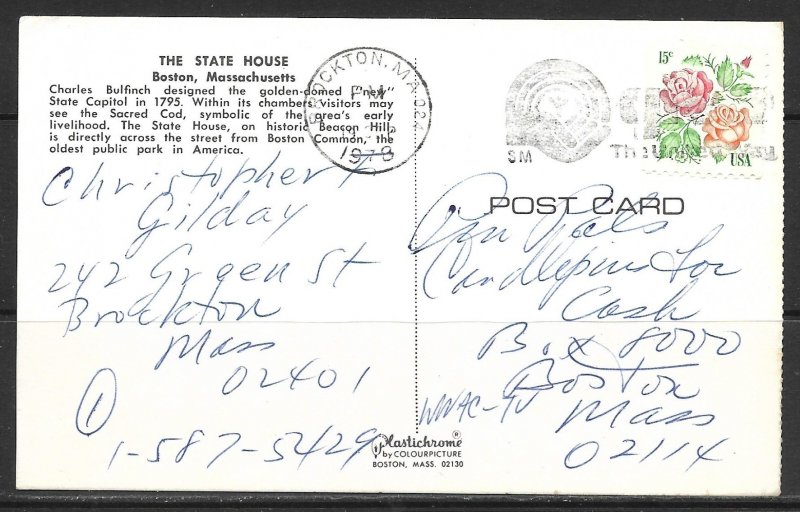 THE STATE HOUSE
Boston, Massachusetts
Charles Bulfinch designed the golden-domed "new"
State Capitol in 1795. Within its chambers visitors may
see the Sacred Cod, symbolic of the area's early
livelihood. The State House, on historic Beacon Hill,
is directly across the street from Boston Common, the
oldest public park in America.
BROCKTON, MA 024
PM
1978
SM
The United Way
15c
USA
POST CARD
Christopher
Gilday
242 Green St
Brockton
Mass
02401
1
1-587-5429
Pen Pals
Candlepins For
Cash
Box 8000
Boston
WNAC-TV
Mass
02114
Plastichrome ®
by COLOURPICTURE
BOSTON, MASS. 02130